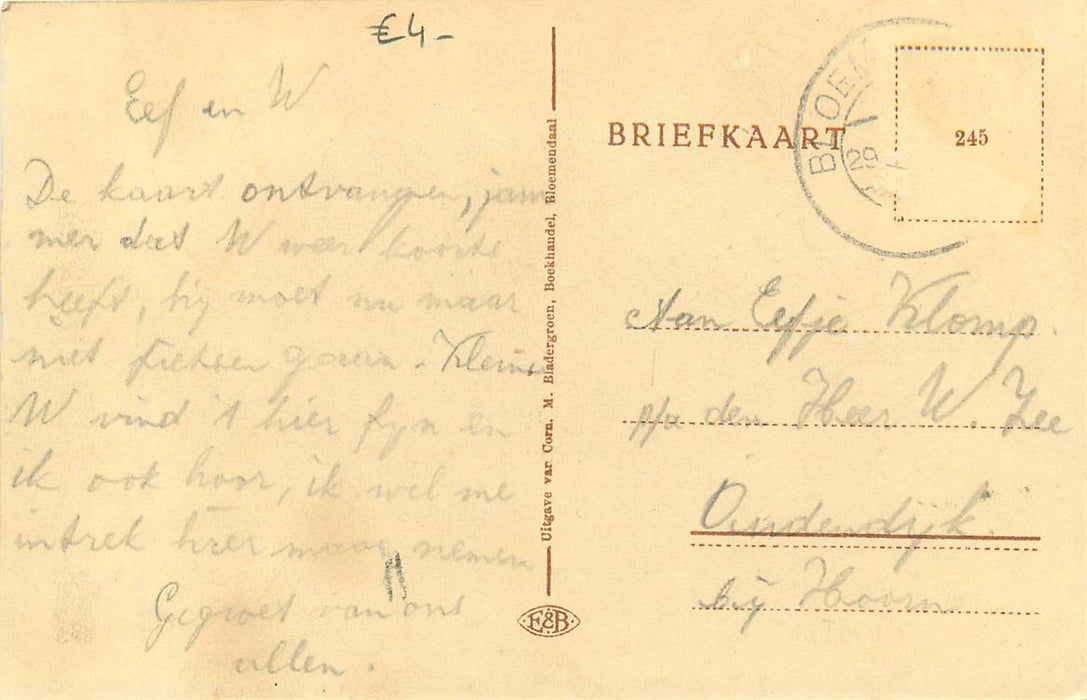 €4-
Eef en W
De kaart ontvangen, jam
mer dat W weer koorts
heeft, hij moet nu maar
niet fietsen gaan. Kleine
W vind 't hier fijn en
ik ook hoor, ik wil me
intrek hier maar nemen
Gegroet van ons
allen.
Uitgave van Corn. M. Bladergroen, Boekhandel, Bloemendaal
E&B
BRIEFKAART
BLOEM
29
245
Aan Eefje Klomp.
p/a den Heer W. Zee
Oudendijk
bij Hoorn